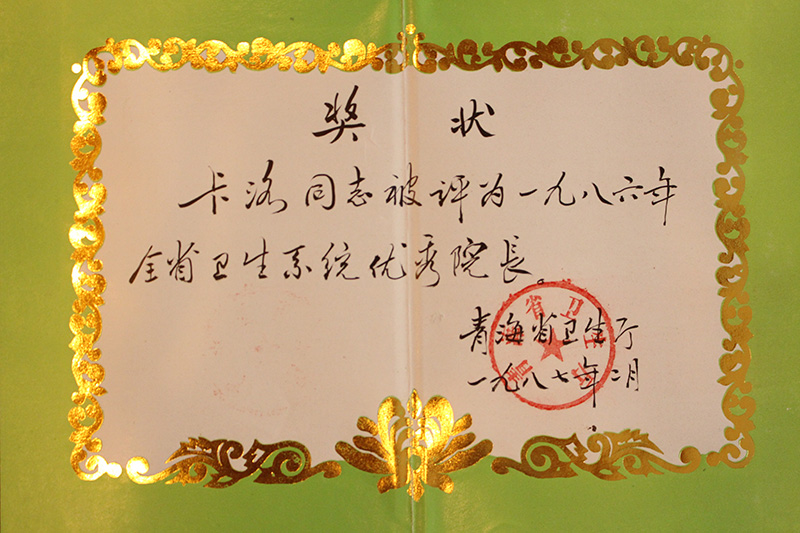 奖状
卡洛同志被评为一九八六年
全省卫生系统优秀院長。
青海省卫生厅
一九八七年二月